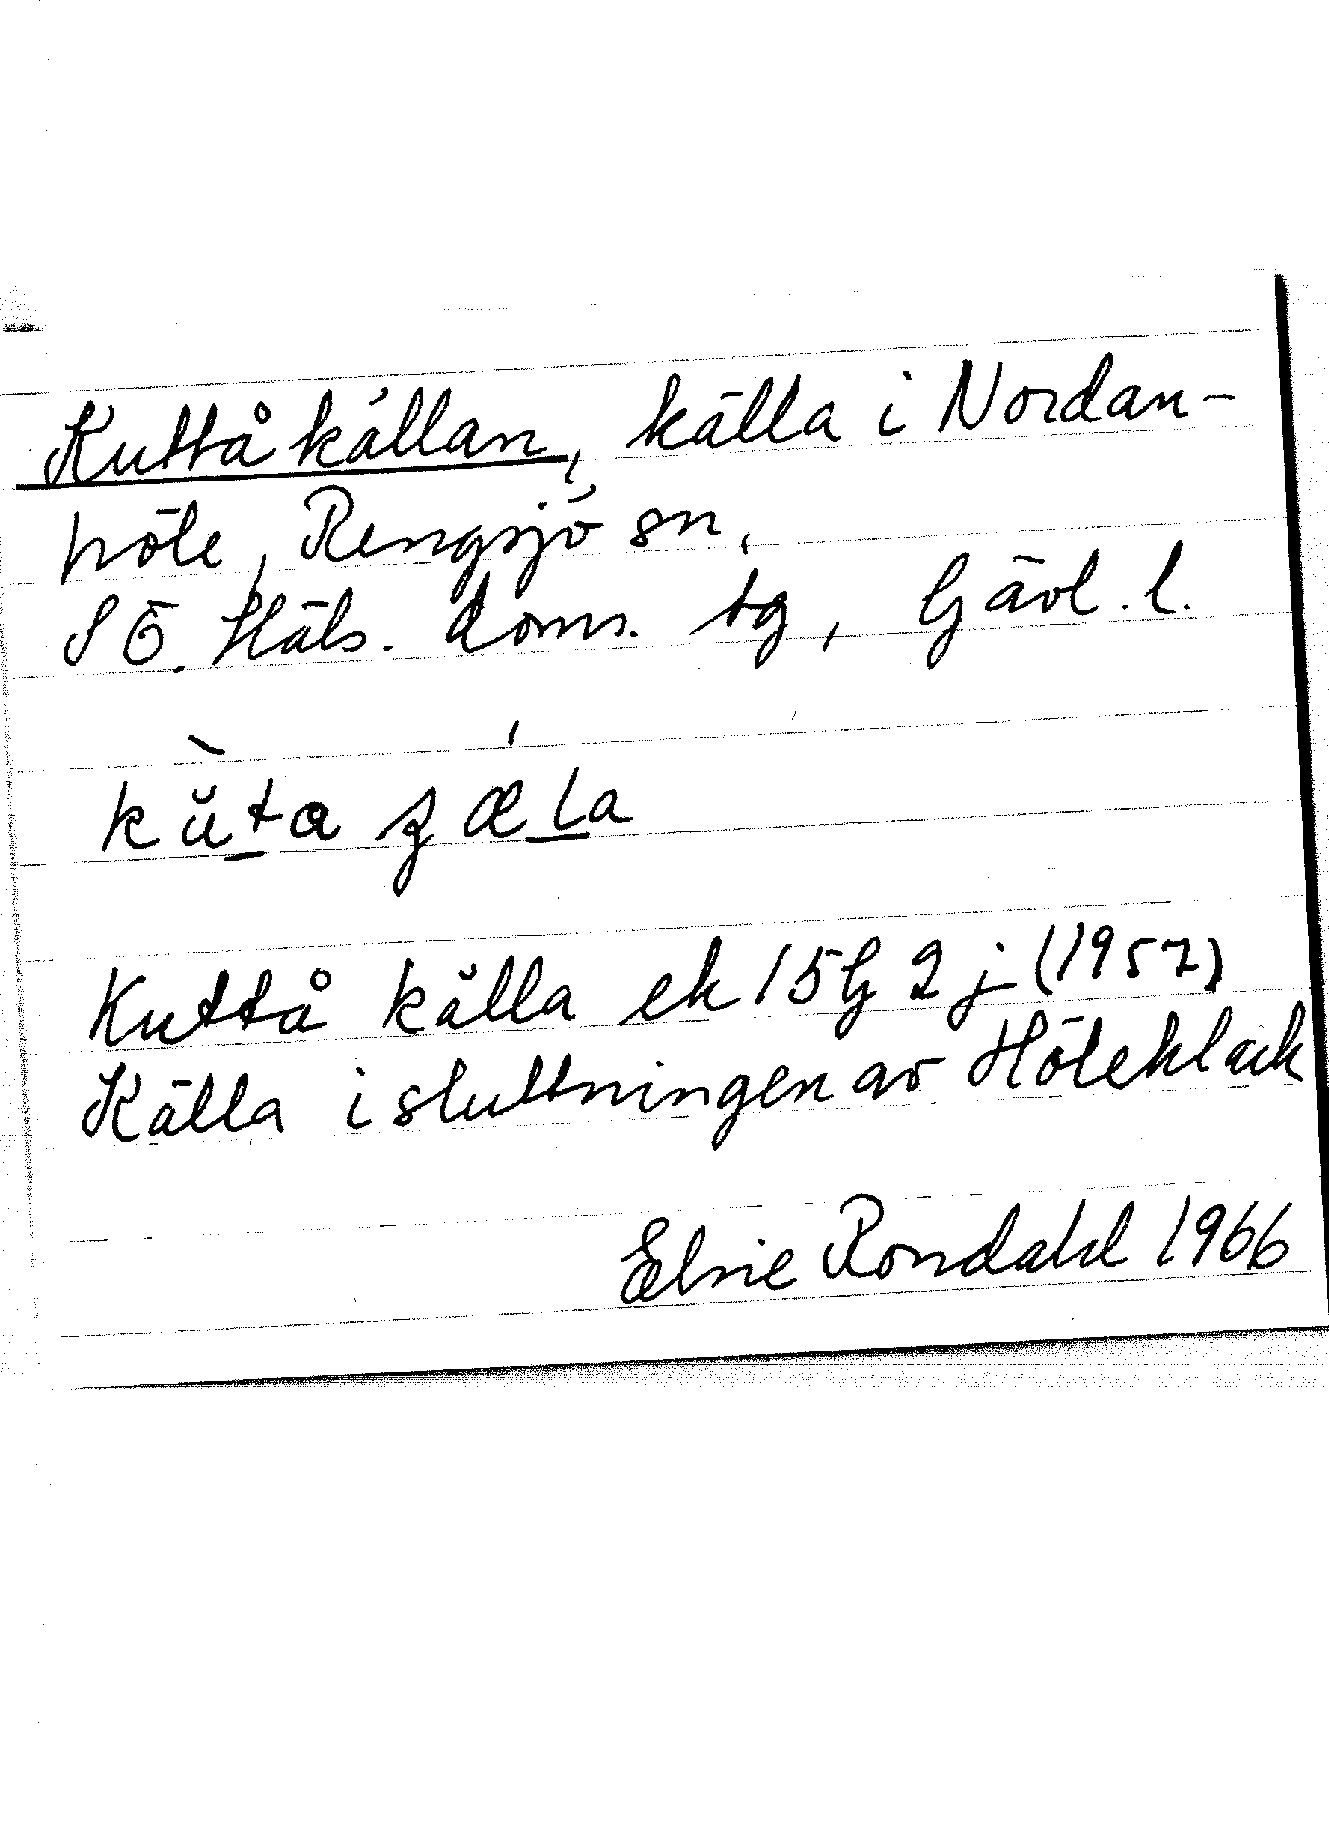 Kuttåkällan, källa i Nordan-
höle, Rengsjö sn,
SÖ. Häls. doms. tg, Gävl. l.
kŭta ʒæla
Kuttå källa ek 15G 2j (1957)
Källa i sluttningen av Höleklack
Elsie Rondahl 1966